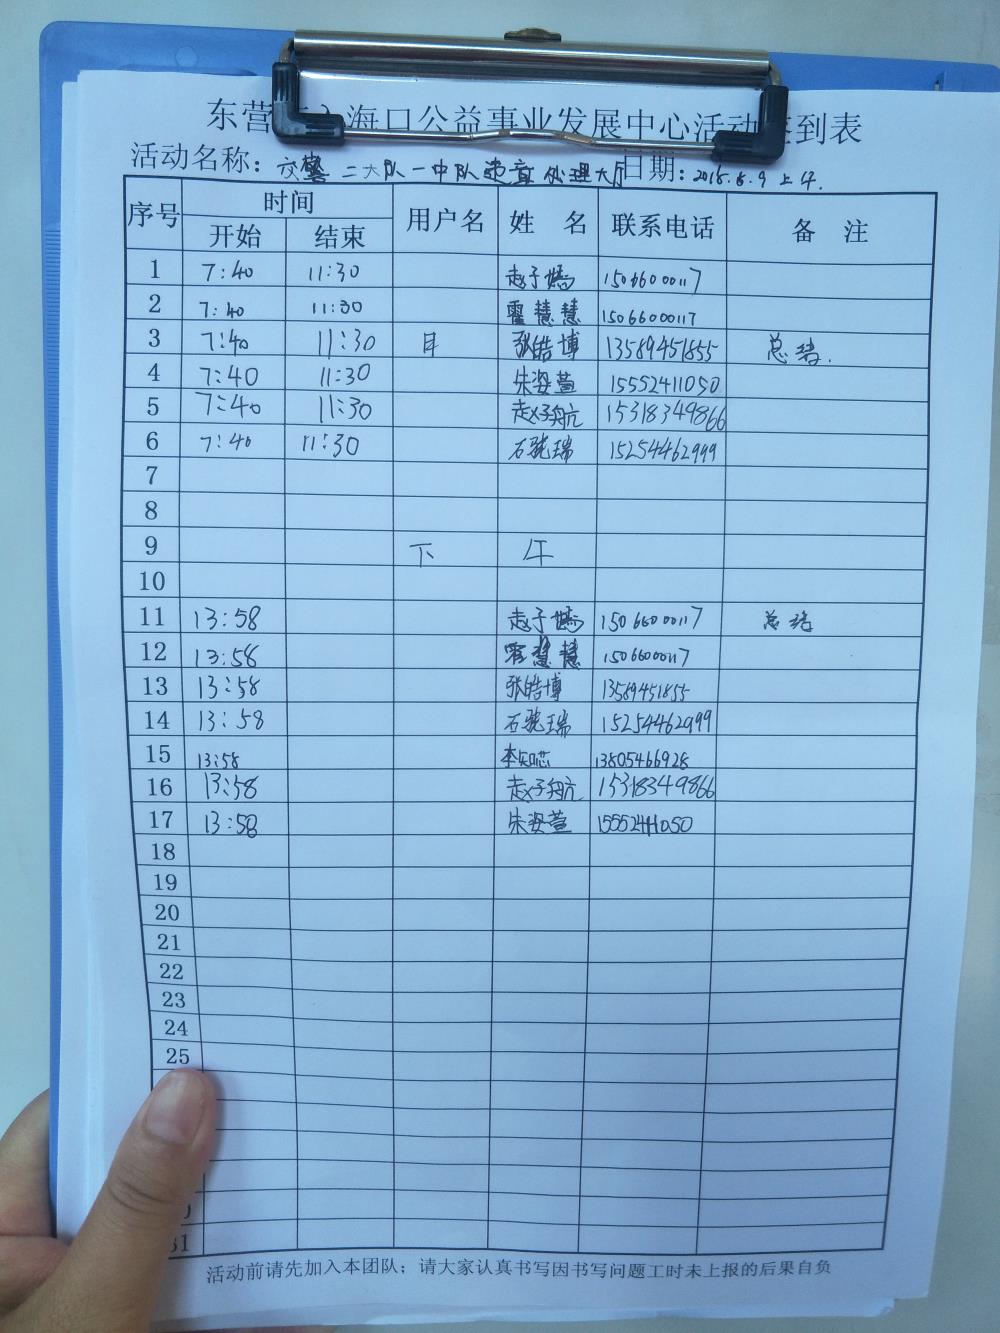 东营 海口公益事业发展中心活动签到表
活动名称：交警二大队一中队违章处理大厅 日期：2018.8.9 上午.
序号 时间 用户名 姓 名 联系电话 备 注
开始 结束
1 7:40 11:30 赵子嫣 15066000117
2 7:40 11:30 霍慧慧 15066000117
3 7:40 11:30 张皓博 13589451855 总结.
4 7:40 11:30 朱姿萱 15552411050
5 7:40 11:30 赵子航 15318349866
6 7:40 11:30 石琥瑞 15254462999
7
8
9 下 午
10
11 13:58 赵子嫣 15066000117 总结
12 13:58 霍慧慧 15066000117
13 13:58 张皓博 13589451855
14 13:58 石琥瑞 15254462999
15 13:58 李知芯 13805466928
16 13:58 赵子航 15318349866
17 13:58 朱姿萱 15552411050
18
19
20
21
22
23
24
25
31
活动前请先加入本团队；请大家认真书写因书写问题工时未上报的后果自负